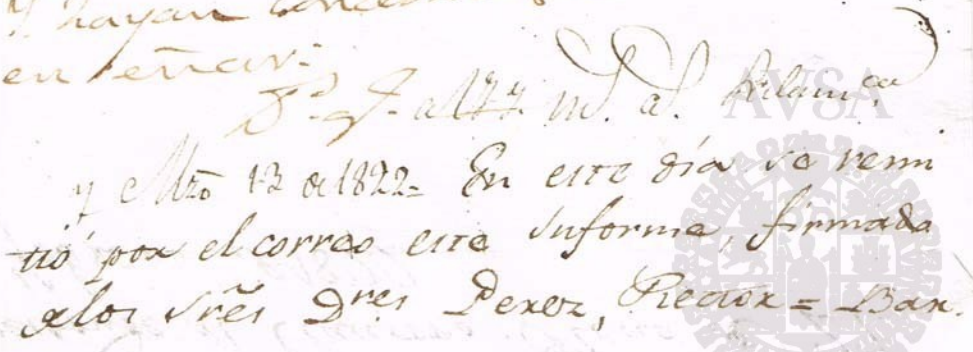 y hayan
en
Ds. ge. a V. M. as. as. Salam.ca
y Mzō 13 de 1822= En este día se remi
tió por el correo este informe, firmado
de los Srẽs Dres Perez, Rector = Bar.
AVSA